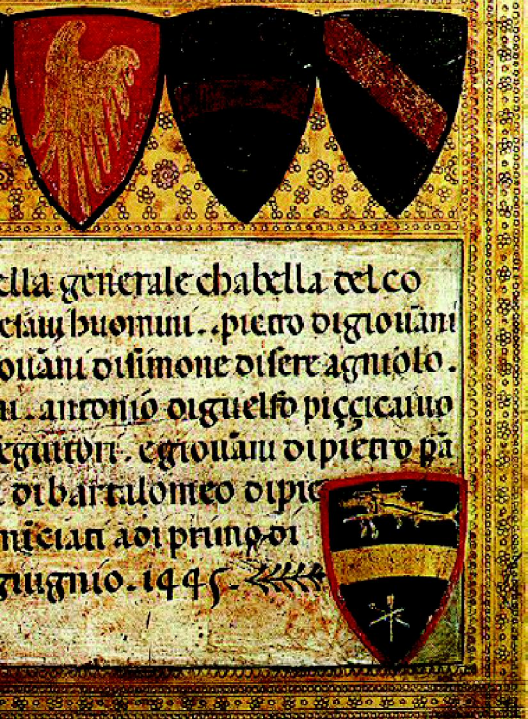 ella generale chabella del co
ctavi huomini . . pietro digiovãni
ovãni disimone disere agniolo .
ni . antonio diguelfo piççicaiuo
eguitori . egiovãni dipietro pã
. di bartalomeo dipie
niciati adi primo di
giugnio . 1445 .